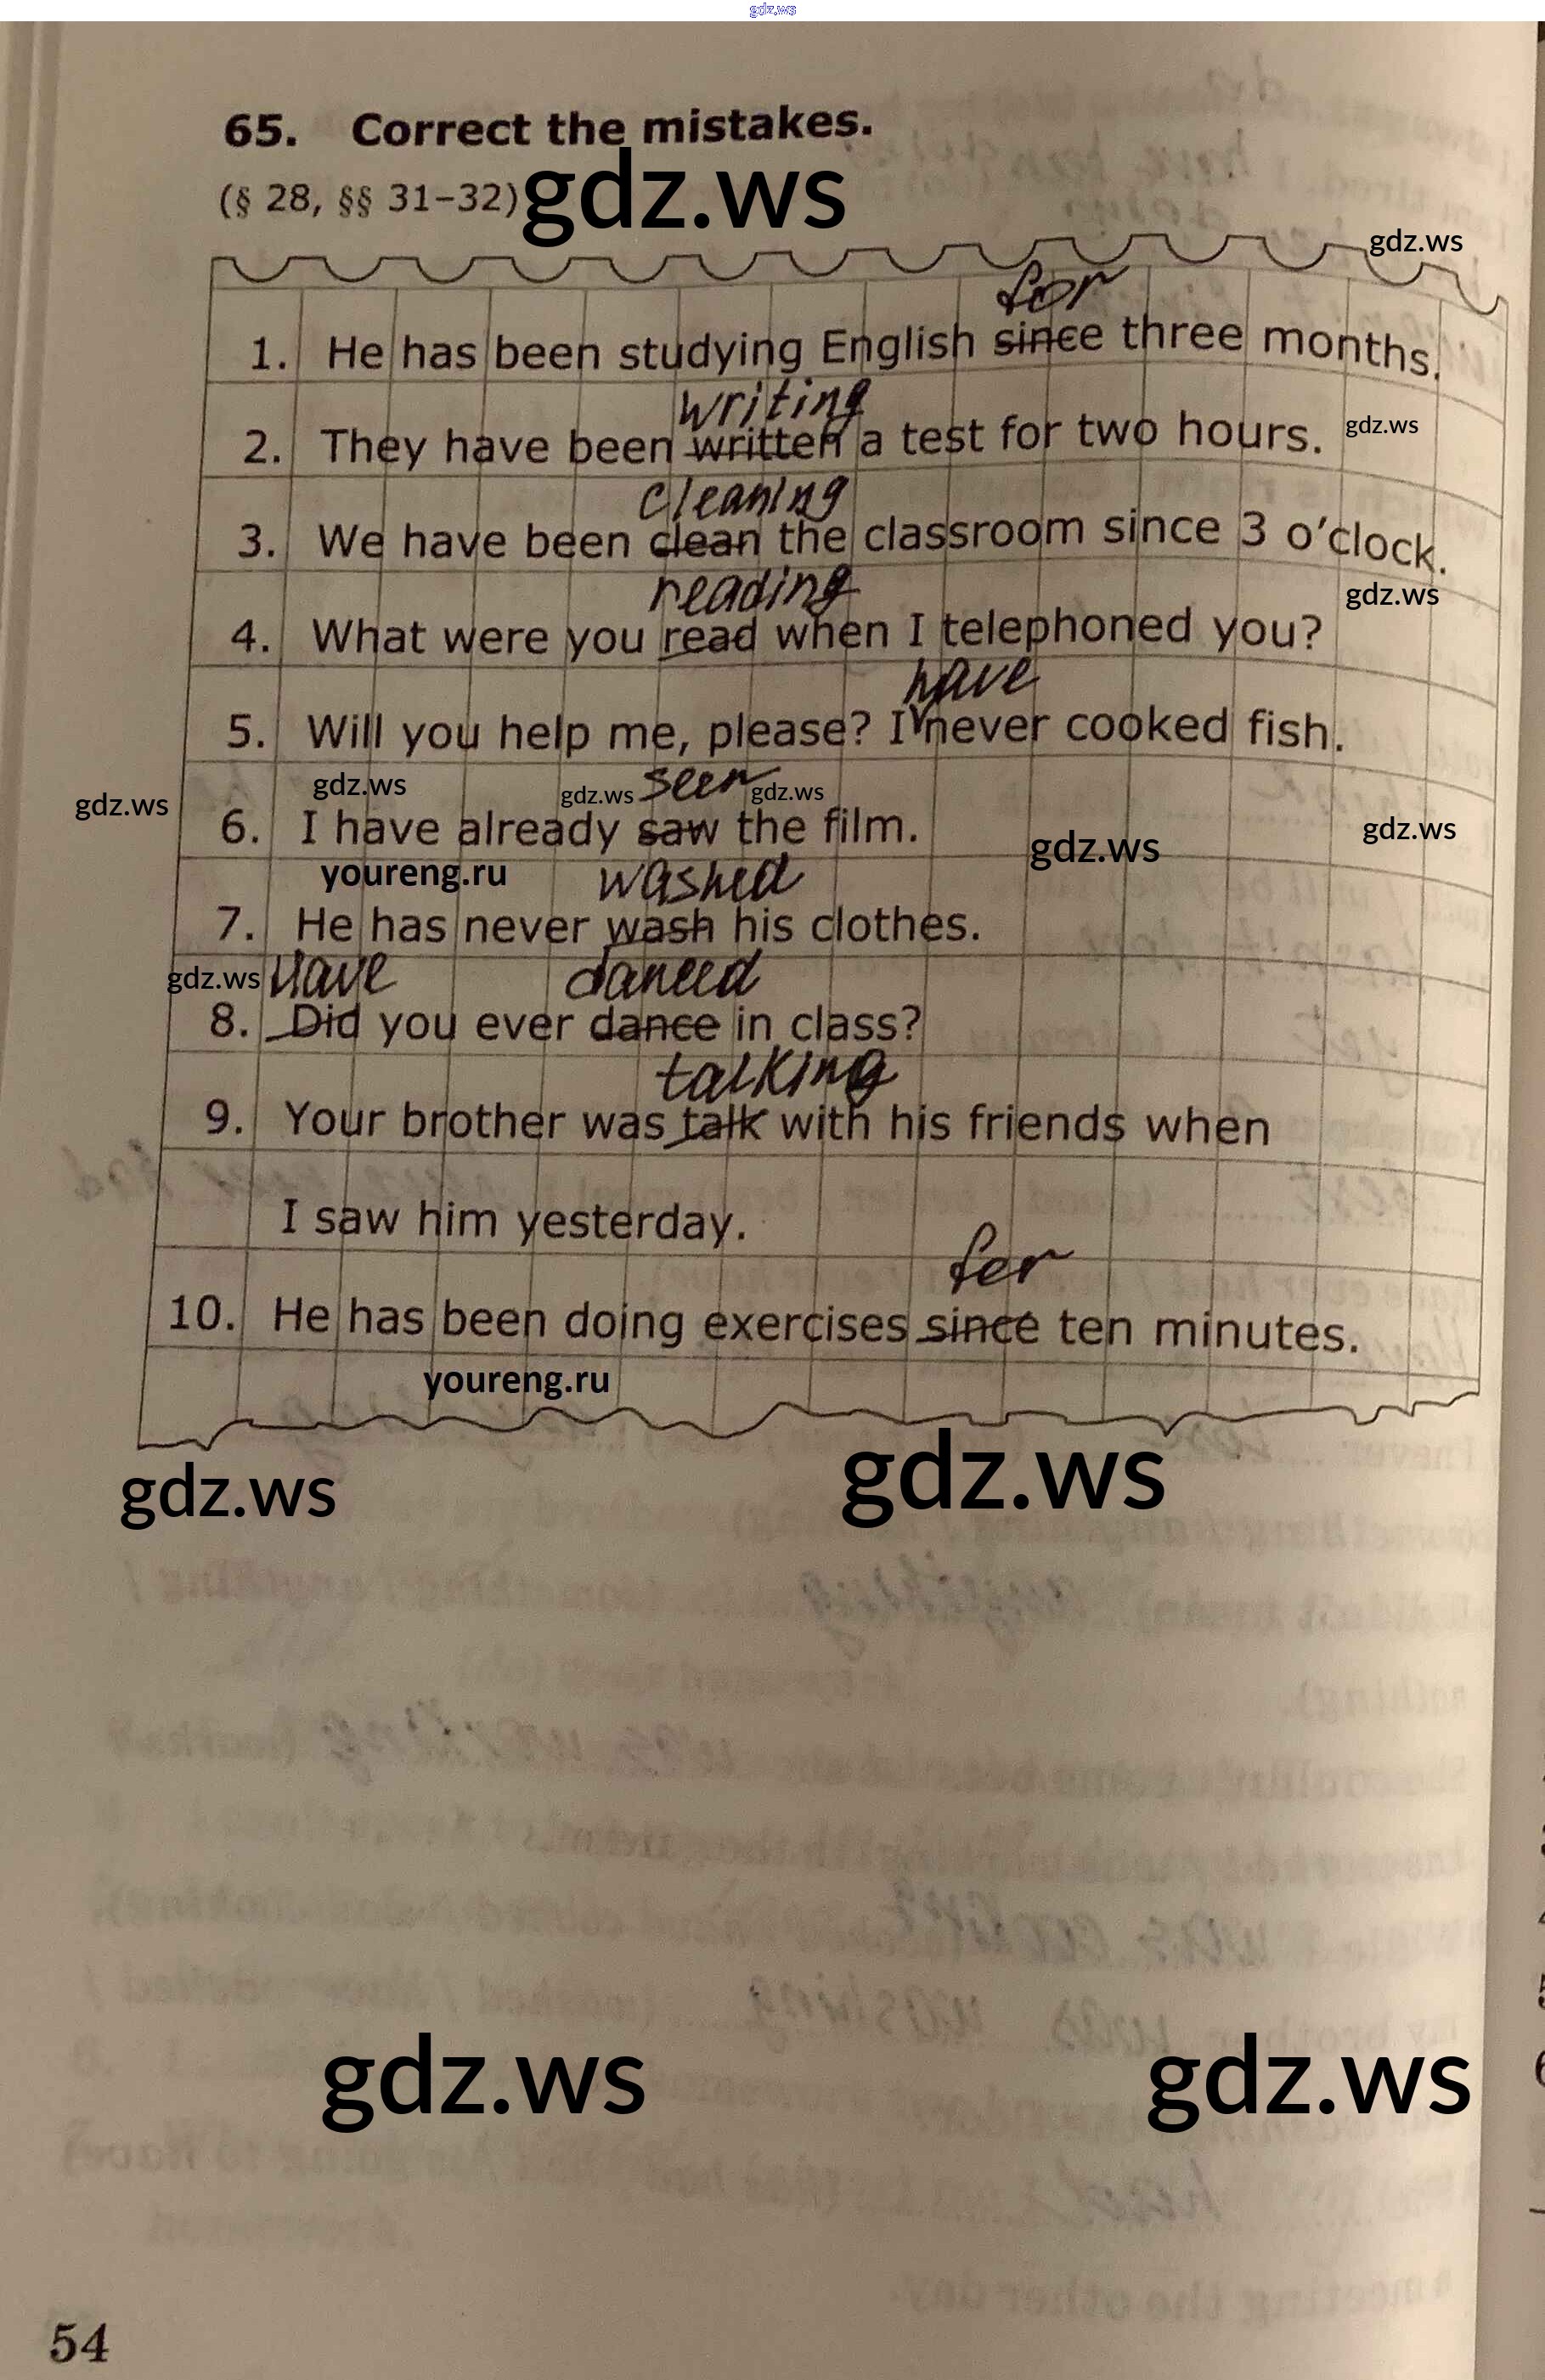 gdz.ws
65. Correct the mistakes.
(§ 28, §§ 31–32) gdz.ws
gdz.ws
for
1. He has been studying English since three months.
writing
2. They have been written a test for two hours. gdz.ws
cleaning
3. We have been clean the classroom since 3 o'clock.
reading
gdz.ws
4. What were you read when I telephoned you?
have
5. Will you help me, please? I never cooked fish.
gdz.ws gdz.ws gdz.ws seen gdz.ws
6. I have already saw the film. gdz.ws gdz.ws
youreng.ru washed
7. He has never wash his clothes.
gdz.ws Have danced
8. Did you ever dance in class?
talking
9. Your brother was talk with his friends when
I saw him yesterday.
for
10. He has been doing exercises since ten minutes.
youreng.ru
gdz.ws gdz.ws
gdz.ws gdz.ws
54